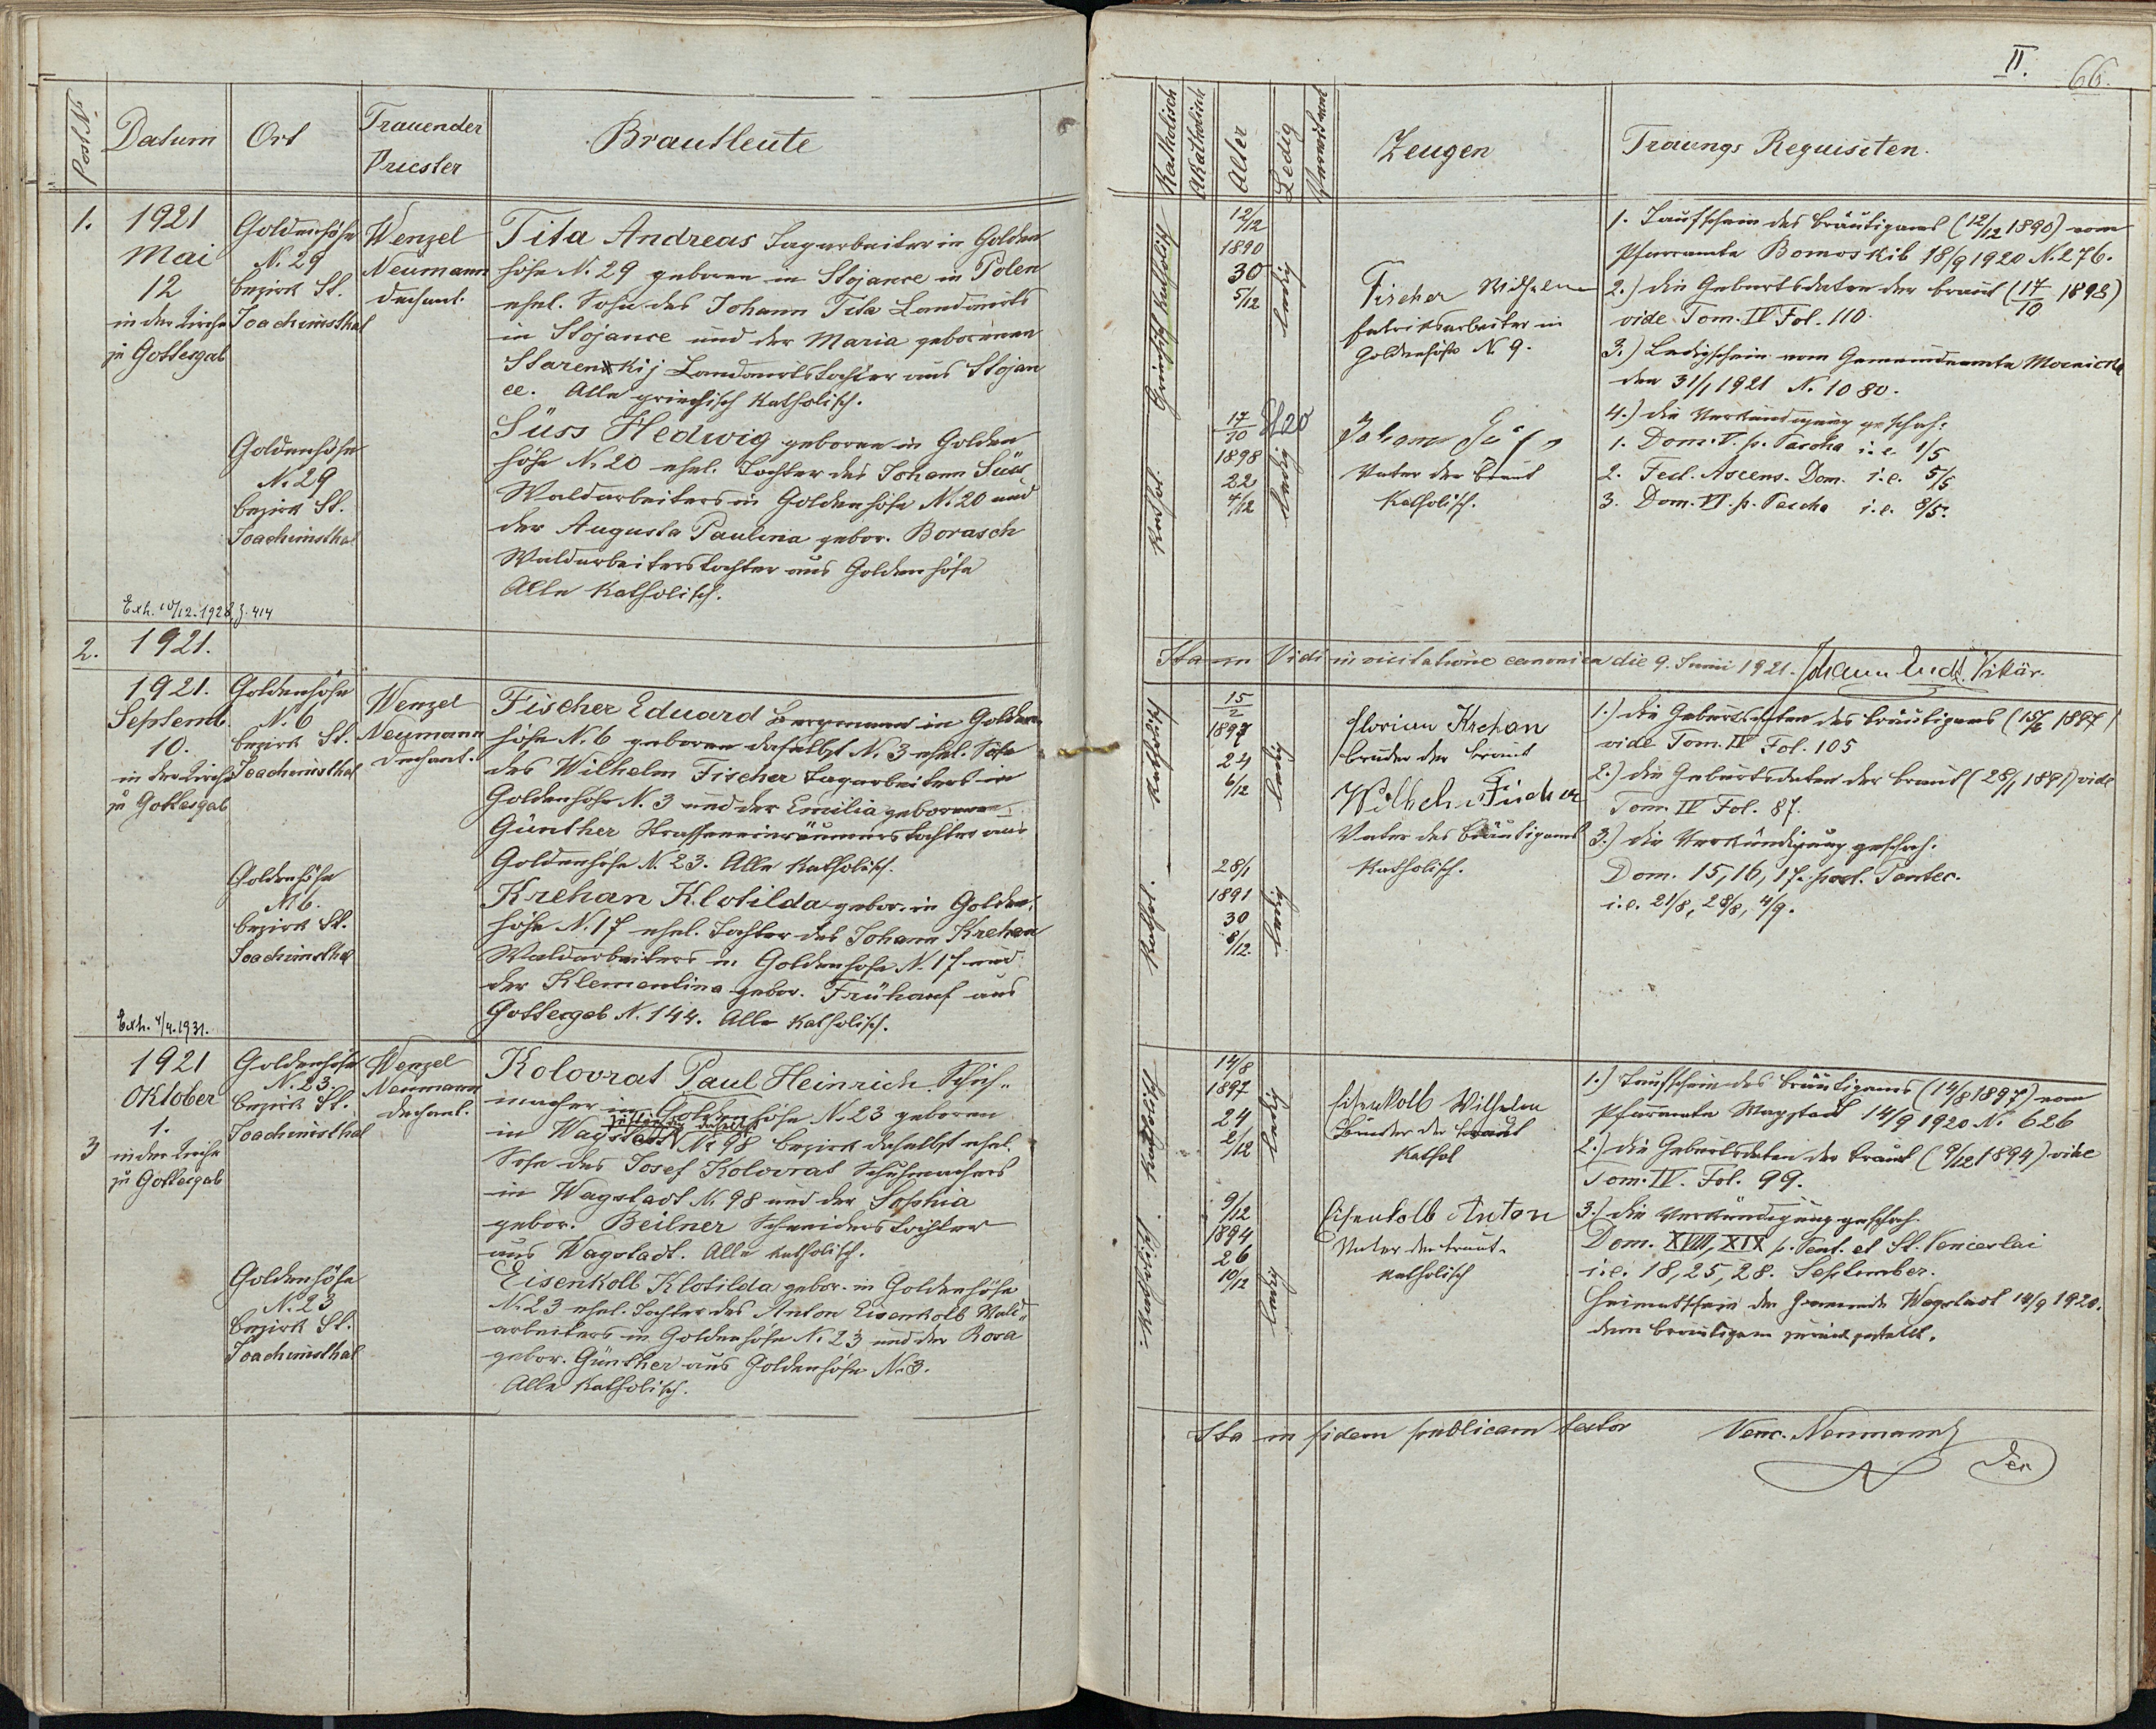 Post Nr.
Datum
Ort
Trauender
Priester
Brautleute
1.
1921
Mai
12
in der Kirche
zu Gottesgab
Goldenhöhe
N. 29
Bezirk St.
Joachimsthal
Wenzel
Neumann
Dechant.
Tita Andreas Tagarbeiter in Golden
höhe N. 29 geboren in Stojance in Polen
ehel. Sohn des Johann Tita Landwirts
in Stojance und der Maria geborenen
Starenskij Landwirtstochter aus Stojan
ce. Alle griechisch Katholisch.
Goldenhöhe
N. 29
Bezirk St.
Joachimsthal
Süss Hedwig geboren in Golden
höhe N. 20 ehel. Tochter des Johann Süss
Waldarbeiters in Goldenhöhe N. 20 und
der Augusta Paulina gebor. Borasch
Waldarbeiterstochter aus Goldenhöhe
Alle Katholisch.
Exh. 10/12. 1928, Z. 414
2.
1921.
1921.
Septemb.
10.
in der Kirche
zu Gottesgab
Goldenhöhe
N. 6
Bezirk St.
Joachimsthal
Wenzel
Neumann
Dechant.
Fischer Eduard Bergmann in Golden
höhe N. 6 geboren daselbst N. 3 ehel. Sohn
des Wilhelm Fischer Tagarbeiters in
Goldenhöhe N. 3 und der Emilia geborenen
Günther Strasseneinräumerstochter aus
Goldenhöhe N. 23. Alle Katholisch.
Goldenhöhe
N. 6.
Bezirk St.
Joachimsthal
Krehan Klotilda gebor. in Golden
höhe N. 17 ehel. Tochter des Johann Krehan
Waldarbeiters in Goldenhöhe N. 17 und
der Klementina gebor. Frühauf aus
Gottesgab N. 144. Alle Katholisch.
Exh. 4/4. 1931.
3
1921
Oktober
1.
in der Kirche
zu Gottesgab
Goldenhöhe
N. 23.
Bezirk St.
Joachimsthal
Wenzel
Neumann
Dechant.
Kolovrat Paul Heinrich Schuh-
macher in Goldenhöhe N. 23 geboren
zuständig daselbst
in Wagstadt N. 98 Bezirk daselbst ehel.
Sohn des Josef Kolovrat Schuhmachers
in Wagstadt N. 98 und der Sophia
gebor. Beilner Schneiderstochter
aus Wagstadt. Alle katholisch.
Goldenhöhe
N. 23
Bezirk St.
Joachimsthal
Eisenkolb Klotilda gebor. in Goldenhöhe
N. 23 ehel. Tochter des Anton Eisenkolb Wald-
arbeiters in Goldenhöhe N. 23 und der Rosa
gebor. Günther aus Goldenhöhe N. 3.
Alle Katholisch.
II.
66.
Katholisch
Akatholisch
Alter
Ledig
Verwitwet
Zeugen
Trauungs Requisiten.
Griechisch Katholisch
12/12
1890
30
5/12
ledig
Fischer Wilhelm
Fabriksarbeiter in
Goldenhöhe N. 9.
1. Taufschein des Bräutigams (12/12 1890) vom
Pfarramte Bomoskib 18/9 1920 N. 276.
2.) Die Geburtsdaten der Braut (17/10 1898)
vide Tom. IV Fol. 110.
3.) Ledigschein vom Gemeindeamte
den 31/1 1921 N. 1080.
4.) Die Verkündigung geschah:
1. Dom. V. p. Pascha i. e. 1/5
2. Fest. Ascens. Dom. i. e. 5/5
3. Dom. VI. p. Pascha i. e. 8/5.
Kathol.
17/10
1898
22
4/12
ledig
Johann Süss
Vater der Braut
Katholisch.
Ita in Vidi in visitatione canonica die 9. Junii 1921. Vikär.
Katholisch
15/2
1897
24
6/12
ledig
Florian Krehan
Bruder der Braut
Wilhelm Fischer
Vater des Bräutigams
Katholisch.
1.) Die Geburtsdaten des Bräutigams (15/2 1897)
vide Tom. IV Fol. 105
2.) Die Geburtsdaten der Braut (28/1 1891) vide
Tom IV Fol. 87.
3.) Die Verkündigung geschah.
Dom. 15, 16, 17. post. Pentec.
i. e. 21/8, 28/8, 4/9.
Kathol.
28/1
1891
30
8/12.
ledig
Katholisch
14/8
1897
24
2/12
ledig
Eisenkolb Wilhelm
Bruder der Braut
Kathol
1.) Taufschein des Bräutigams (14/8 1897) vom
Pfarramte Wagstadt 14/9 1920 N. 626
2.) Die Geburtsdaten der Braut (9/12 1894) vide
Tom. IV. Fol. 99.
3.) Die Verkündigung geschah.
Dom. XVIII, XIX p. Pent. et St. Venceslai
i. e. 18, 25, 28. September.
Heimatschein der Gemeinde Wagstadt 14/9 1920.
dem Bräutigam zurückgestellt.
Katholisch
9/12
1894
26
10/12
ledig
Eisenkolb Anton
Vater der Braut.
Katholisch
Ita in fidem publicam testor Venc. Neumann